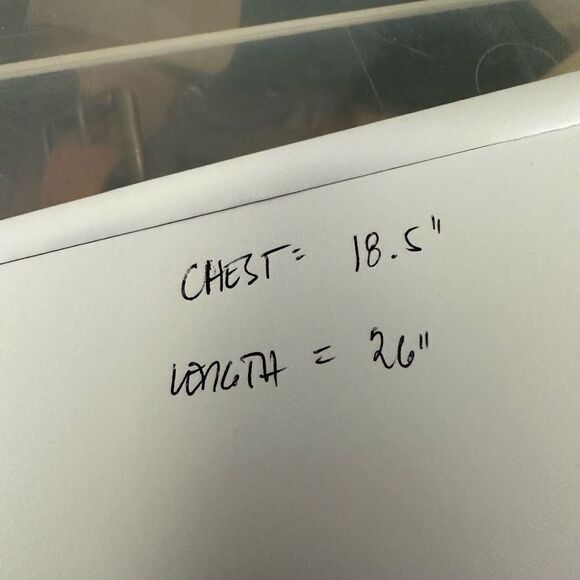 CHEST = 18.5"
LENGTH = 26"